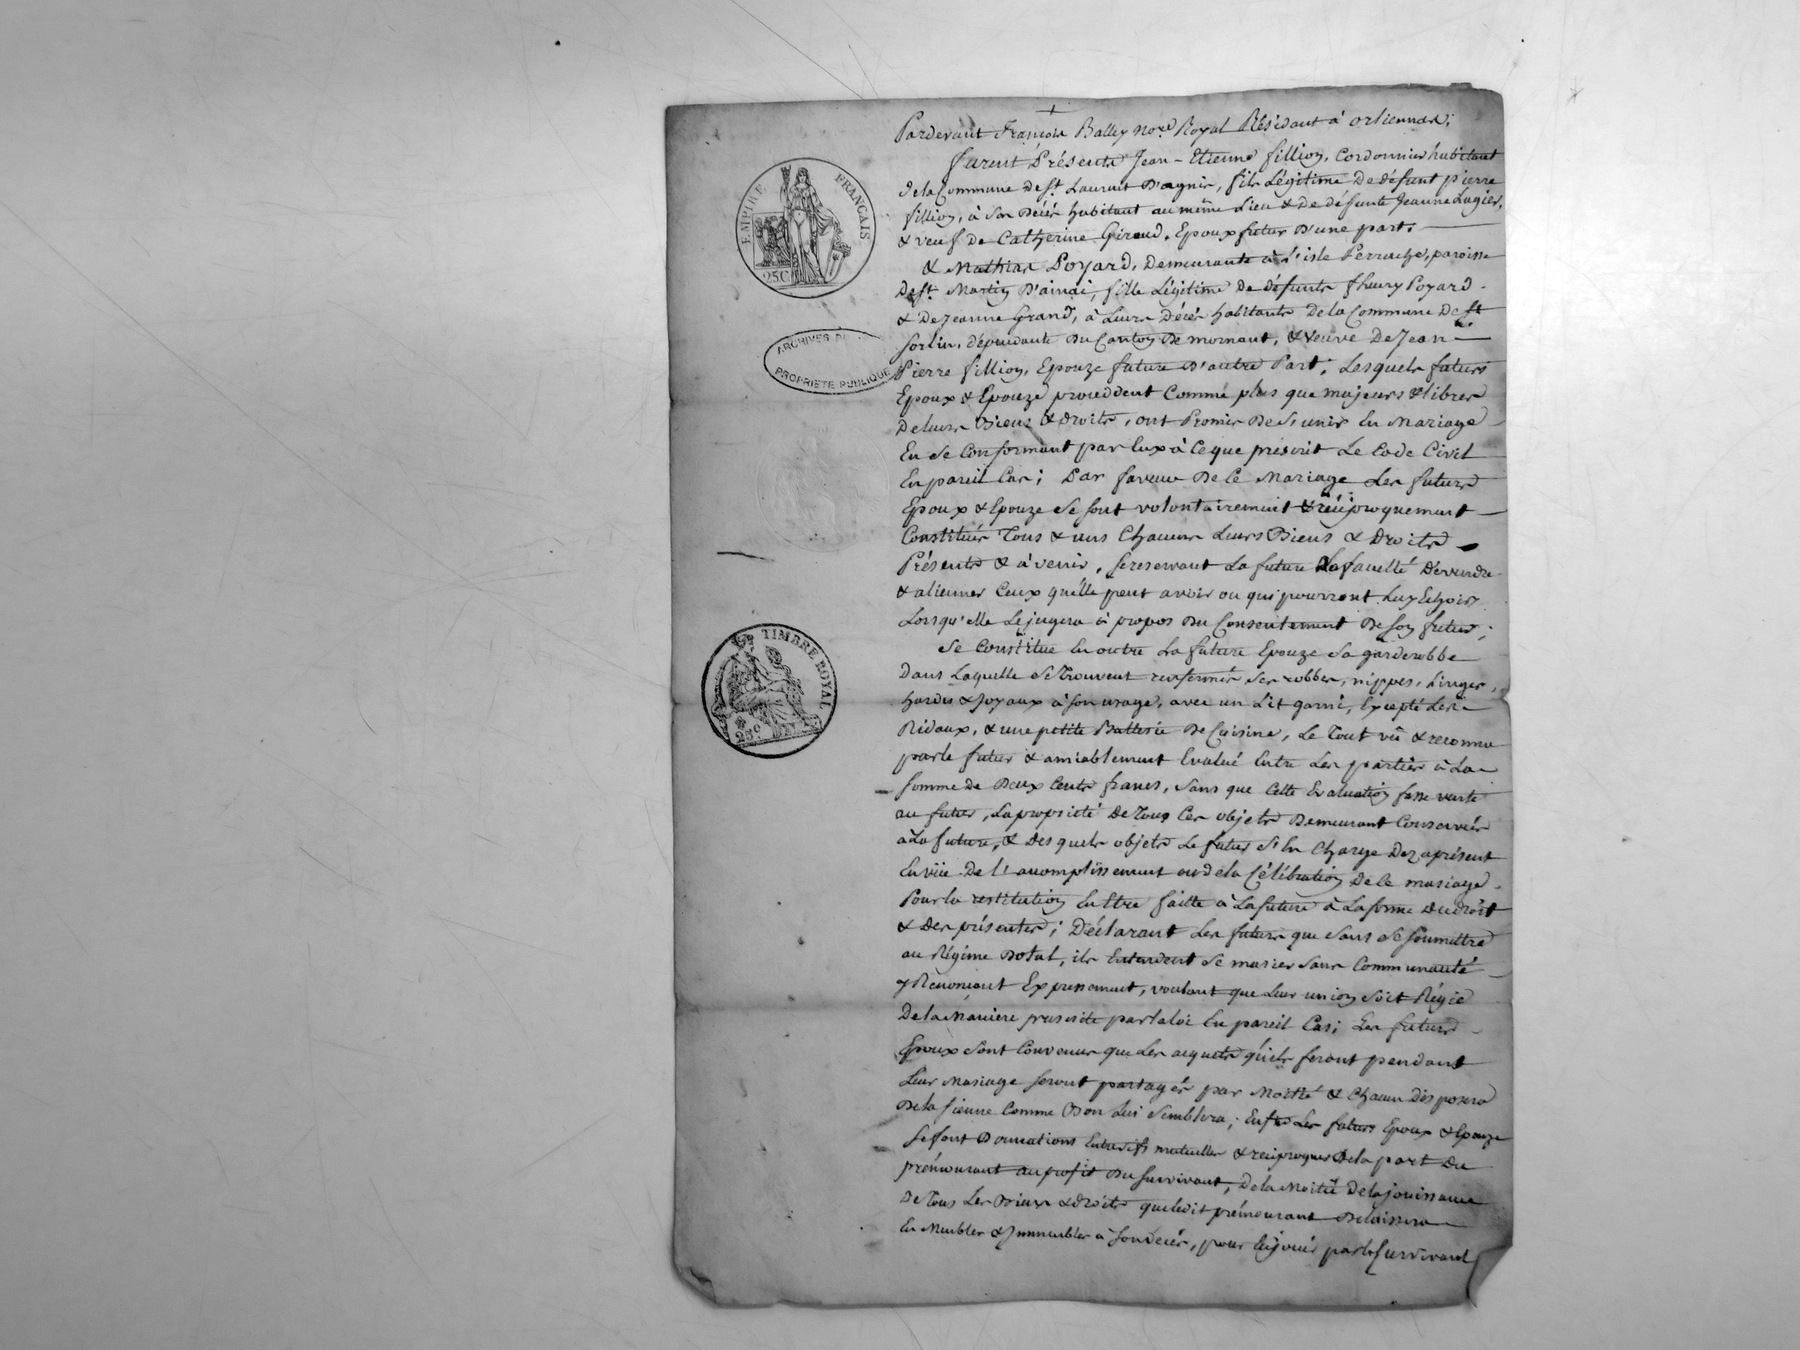 Pardevant François Balley no.re Royal Résidant à orliennas;
furent Présents Jean-Etienne fillion, Cordonnier habitant
de la Commune de St. Laurent D'agnis, fils Légitime De défunt pierre
fillion, à Son Décès habitant au même Lieu & De défunte Jeanne Lugier,
& veuf De Catherine Giraud, Epoux futur D'une part.
& Mathias Poyard, Demeurante à l'isle Perrache, paroisse
De St. Martin D'ainai, fille Légitime De défunts fleury Poyard
& De Jeanne Grand, à Leurs Décès habitants De la Commune De St
Sorlin, dépendante Du Canton De mornant, & veuve De Jean
Pierre fillion, Epouze future D'autre Part; Lesquels futurs
Epoux & Epouze procèddent Comme plus que majeurs & libres
De leurs Biens & droits, ont Promis De S'unir En Mariage
En Se Conformant par Eux à Ce que préscrit Le Code Civil
En pareil Cas; Par faveur De Ce Mariage Les futurs
Epoux & Epouze Se sont volontairement & réciproquement
Constitués Tous & uns Chacuns Leurs Biens & Droits
Présents & à venir, Se reservant La future La faculté D'évendre
& aliener Ceux qu'elle peut avoir ou qui pourront Luy Echoir
Lorsqu'elle Le jugera à propos Du Consentement De Son futur;
Se Constitue En outre La future Epouze Sa garderobbe
Dans Laquelle Se Trouvent renfermés Ses robbes, nippes, Linges,
hardes & Joyaux à Son usage, avec un Lit garni, Excepté Les
Rideaux, & une petite Batterie De Cuisine, Le Tout vû & reconnu
par le futur & amiablement Evalué Entre Les parties à La
Somme de Deux Cents francs, Sans que Cette Evaluation fasse vente
au futur, La propriété De Tous Ces objets Demeurant Conservée
à La future, & Desquels objets Le futur S'En Charge Dez aprésent
En vüe De L'accomplissement ou de la Célébration De Ce mariage
Pour la restitution En Etre faitte à La future à La forme Du droit
& Des présentes; Déclarant Les futurs que Sans Se Soumettre
au Régime Dotal, ils Entendent Se marier Sans Communauté
y Rénonçant Expressement, voulant que Leur union Soit Régie
De la Maniere prescrite par la loi En pareil Cas; Les futurs
Epoux Sont Convenus que Les acquets qu'ils feront pendant
Leur Mariage Seront partagés par Moitié & Chacun Disposera
De la Sienne Comme Bon Lui Semblera; Enfin Les futurs Epoux & Epouze
Se font Donnations Entrevifs mutuelles & reciproques De la part Du
prémourant au profit Du Survivant, De la Moitié De la jouissance
De Tous Les Biens & droits que ledit prémourant Délaissera
En Meubles & Immeubles à Son décès, pour En jouir par le Survivant
EMPIRE FRANÇAIS
25C
ARCHIVES
PROPRIETE PUBLIQUE
TIMBRE ROYAL
25C